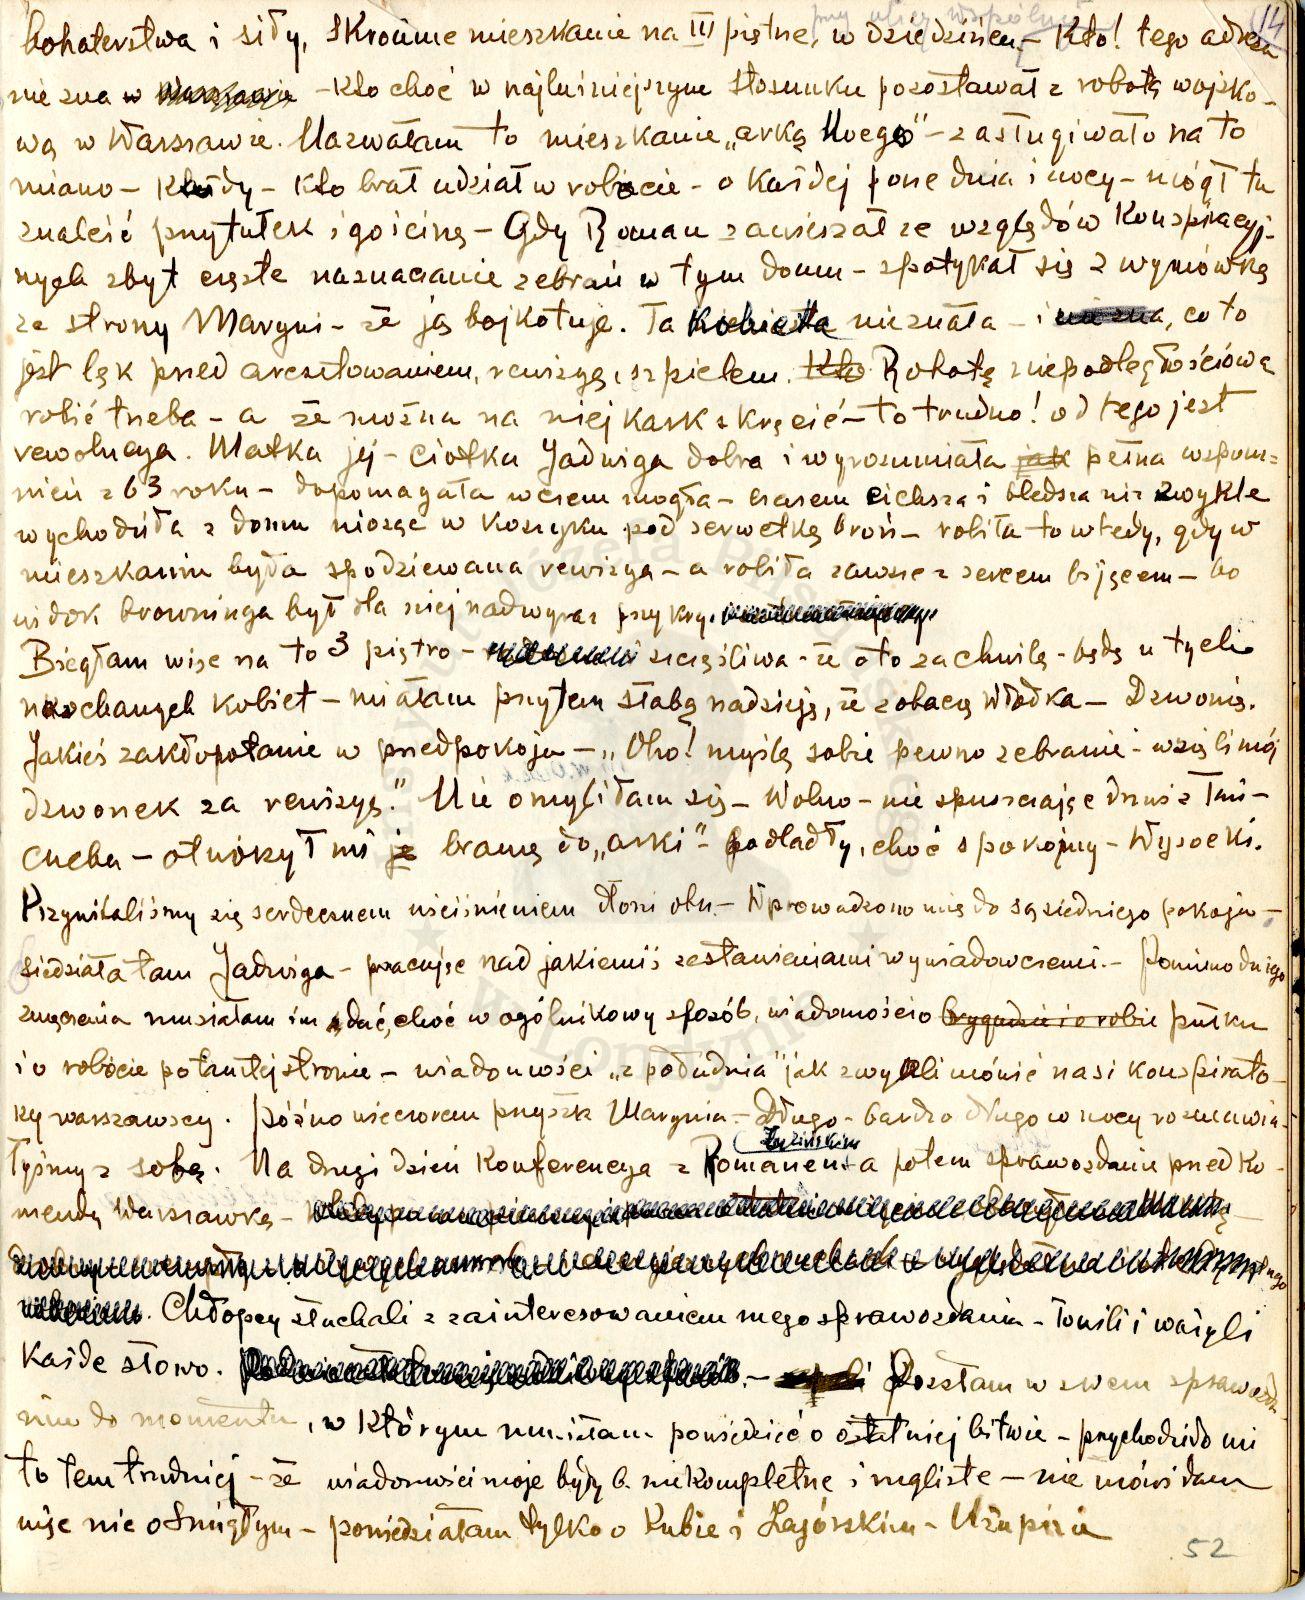 przy ulicy Wspólnej
14
bohaterstwa i siły, skromne mieszkanie na III piętrze, w dziedzińcu – Kto! tego adresu
nie zna w Warszawie – kto choć w najluźniejszym stosunku pozostawał z robotą wojsko-
wą w Warszawie. Nazwałam to mieszkanie „arką Noego" – zasługiwało na to
miano – każdy – kto brał udział w robocie – o każdej porze dnia i nocy – mógł tu
znaleść przytułek i gościnę – Gdy Roman zawieszał ze względów konspiracyj-
nych zbyt częste naznaczanie zebrań w tym domu – spotykał się z wymówką
ze strony Maryni – że ją bojkotuje. Ta kobieta nie znała – i nie zna, co to
jest lęk przed aresztowaniem, rewizyą, szpiclem. Kto Robotę niepodległościową
robić trzeba – a że można na niej kark skręcić – to trudno! od tego jest
rewolucya. Matka jej – ciotka Jadwiga dobra i wyrozumiała jak pełna wspom=
nień z 63 roku – dopomagała w czem mogła – czasem cichsza i bledsza niż zwykle
wychodziła z domu niosąc w koszyku pod serwetką broń – robiła to wtedy, gdy w
mieszkaniu była spodziewana rewizya – a robiła zawsze z sercem bijącem – bo
widok browninga był dla niej nadwyraz przykry.
Biegłam więc na to 3 piętro – szczęśliwa – że oto za chwilę – będę u tych
kochanych kobiet – miałam przytem słabą nadzieję, że zobaczę Władka – Dzwonię.
Jakieś zakłopotanie w przedpokoju – „Oho! myślę sobie pewno zebranie – wzięli mój
dzwonek za rewizyę." Nie omyliłam się – Wolno – nie spuszczając drzwi z łań-
cucha – otworzył mi je bramę do „arki" – pobladły, choć spokojny – Wysocki.
Przywitaliśmy się serdecznem uściśnieniem dłoni obu. – Wprowadzono mię do sąsiedniego pokoju –
siedziała tam Jadwiga – pracując nad jakiemiś zestawieniami wywiadowczemi. – Pomimo dużego
zmęczenia musiałam im dać, choć w ogólnikowy sposób, wiadomości o brygadzie i o robie pułku
i o robocie po tamtej stronie – wiadomości „z południa" jak zwykli mówić nasi konspirato-
rzy warszawscy. Późno wieczorem przyszła Marynia – Długo – bardzo długo w nocy rozmawia-
łyśmy z sobą. Na drugi dzień konferencya z Romanem a potem sprawozdanie przed ko-
mendą Warszawską –
Chłopcy słuchali z zainteresowaniem mego sprawozdania – łowili i ważyli
każde słowo. – Doszłam w swem sprawozda-
niu do momentu, w którym musiałam powiedzieć o ostatniej bitwie – przychodziło mi
to tem trudniej – że wiadomości moje były b. niekompletne i mgliste – nie mówiłam
więc nic o Śmigłym – powiedziałam tylko o Kubie i
52